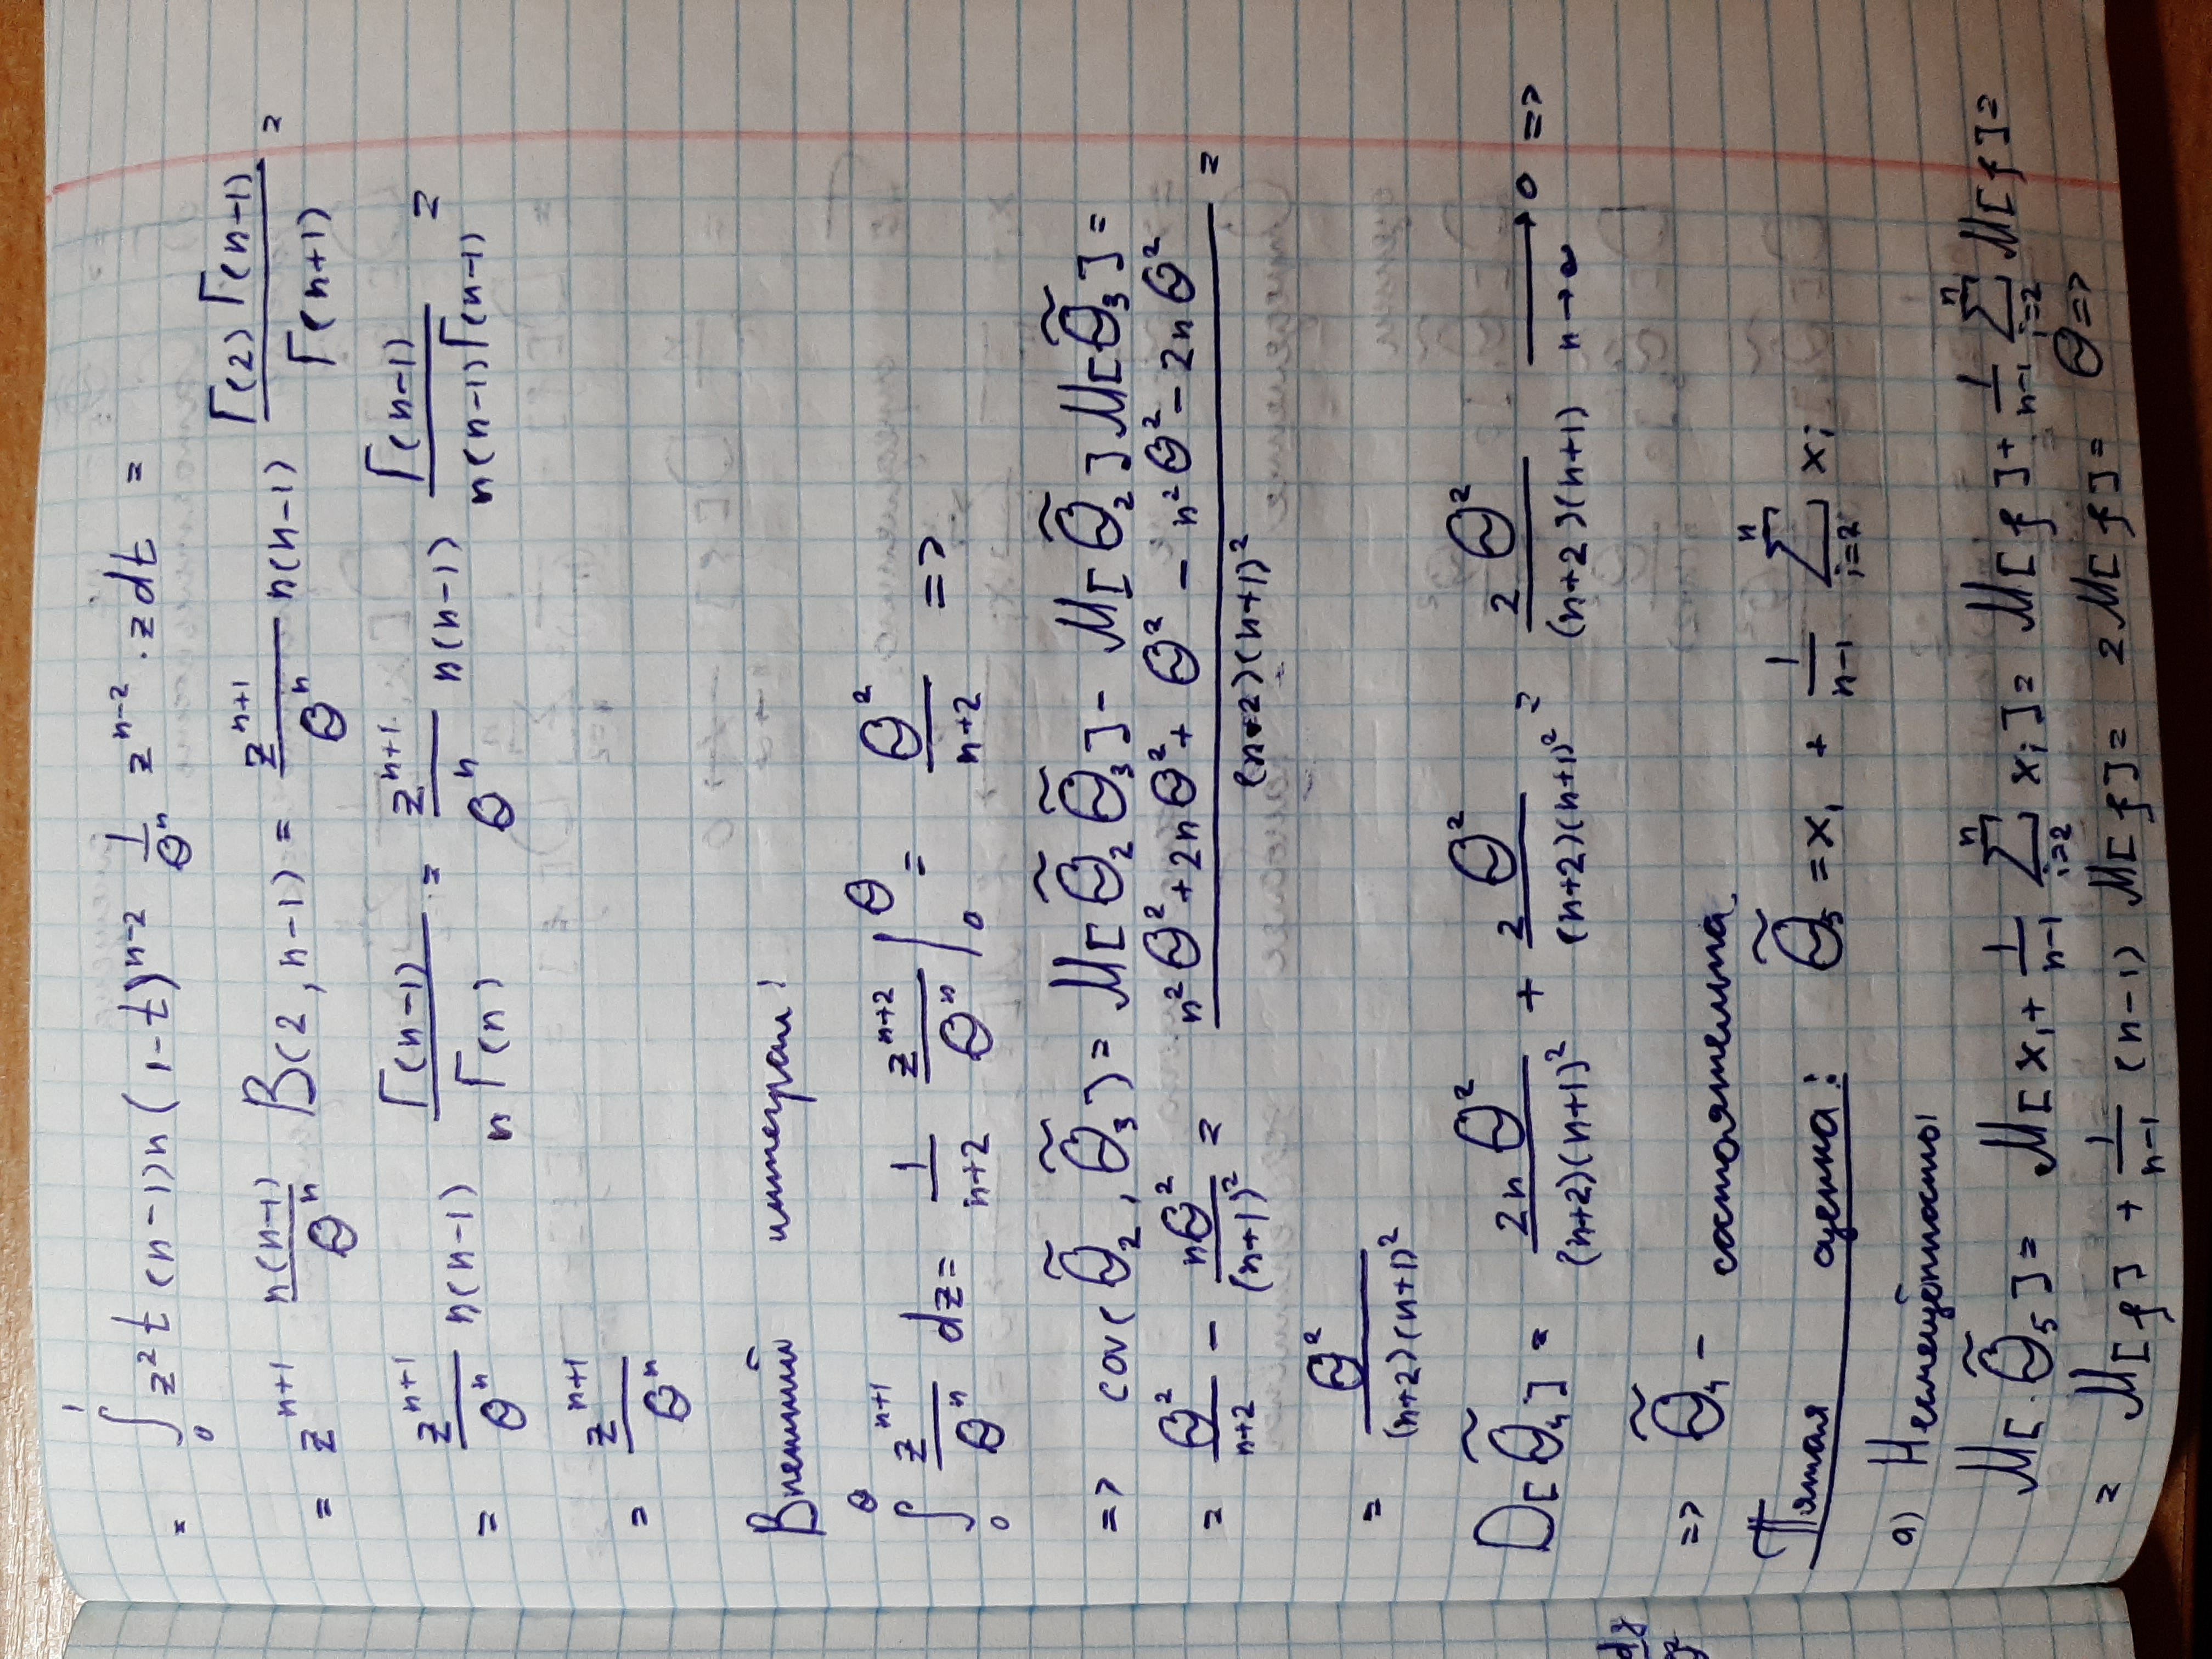 = ∫₀¹ z² t (n-1)n (1-t)ⁿ⁻² 1/θⁿ zⁿ⁻² · z dt =
= zⁿ⁺¹ n(n-1)/θⁿ B(2, n-1) = zⁿ⁺¹/θⁿ n(n-1) Γ(2)Γ(n-1)/Γ(n+1) =
= zⁿ⁺¹/θⁿ n(n-1) Γ(n-1)/(nΓ(n)) = zⁿ⁺¹/θⁿ n(n-1) Γ(n-1)/(n(n-1)Γ(n-1)) =
= zⁿ⁺¹/θⁿ
Внешний интеграл:
∫₀^θ zⁿ⁺¹/θⁿ dz = 1/(n+2) zⁿ⁺²/θⁿ |₀^θ = θ²/(n+2) =>
=> cov(θ̃₂, θ̃₃) = M[θ̃₂ θ̃₃] - M[θ̃₂] M[θ̃₃] =
= θ²/(n+2) - nθ²/(n+1)² = (n²θ² + 2nθ² + θ² - n²θ² - 2nθ²)/((n+2)(n+1)²) =
= θ²/((n+2)(n+1)²)
D[θ̃₄] = 2nθ²/((n+2)(n+1)²) + 2θ²/((n+2)(n+1)²) = 2θ²/((n+2)(n+1)) ⟶ 0 (n→∞) =>
=> θ̃₄ - состоятельна.
Пятая оценка: θ̃₅ = x₁ + 1/(n-1) ∑ᵢ₌₂ⁿ xᵢ
а) Несмещённость
M[θ̃₅] = M[x₁ + 1/(n-1) ∑ᵢ₌₂ⁿ xᵢ] = M[ξ] + 1/(n-1) ∑ᵢ₌₂ⁿ M[ξ] =
= M[ξ] + 1/(n-1) (n-1) M[ξ] = 2M[ξ] = θ =>